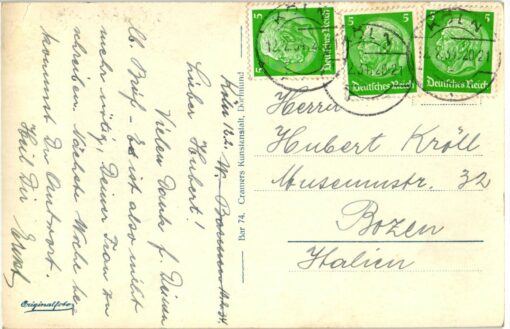 Köln 12.2.
Lieber Hubert!
Vielen Dank f. Deinen
lb. Brief - Es ist also nicht
mehr nötig, Deiner Frau zu
schreiben. Nächste Woche be-
kommst Du Antwort.
Heil Dir
Ernst
Originalfoto
Bar 74. Cramers Kunstanstalt, Dortmund
5
Deutsches Reich
5
Deutsches Reich
5
Deutsches Reich
KÖLN
Herrn
Hubert Kröll
Museumstr. 32
Bozen
Italien